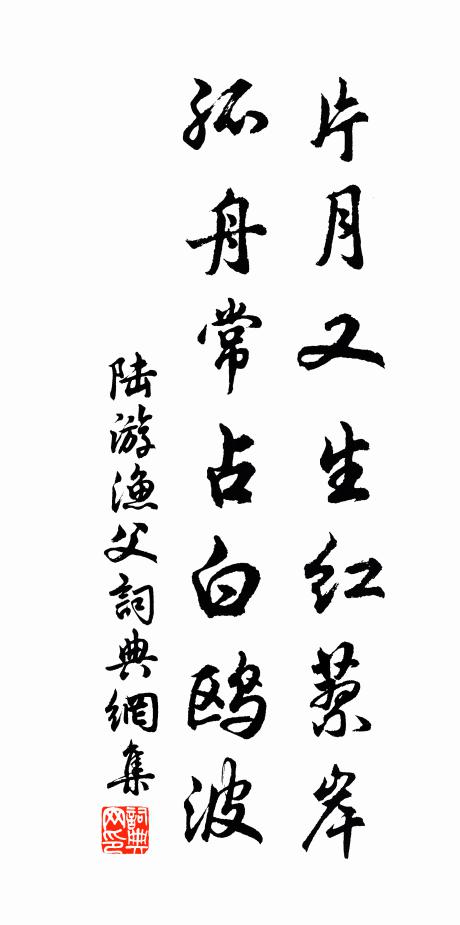 片月又生红蓼岸
孤舟常占白鸥波
陆游漁父詞典網集
詞典网印